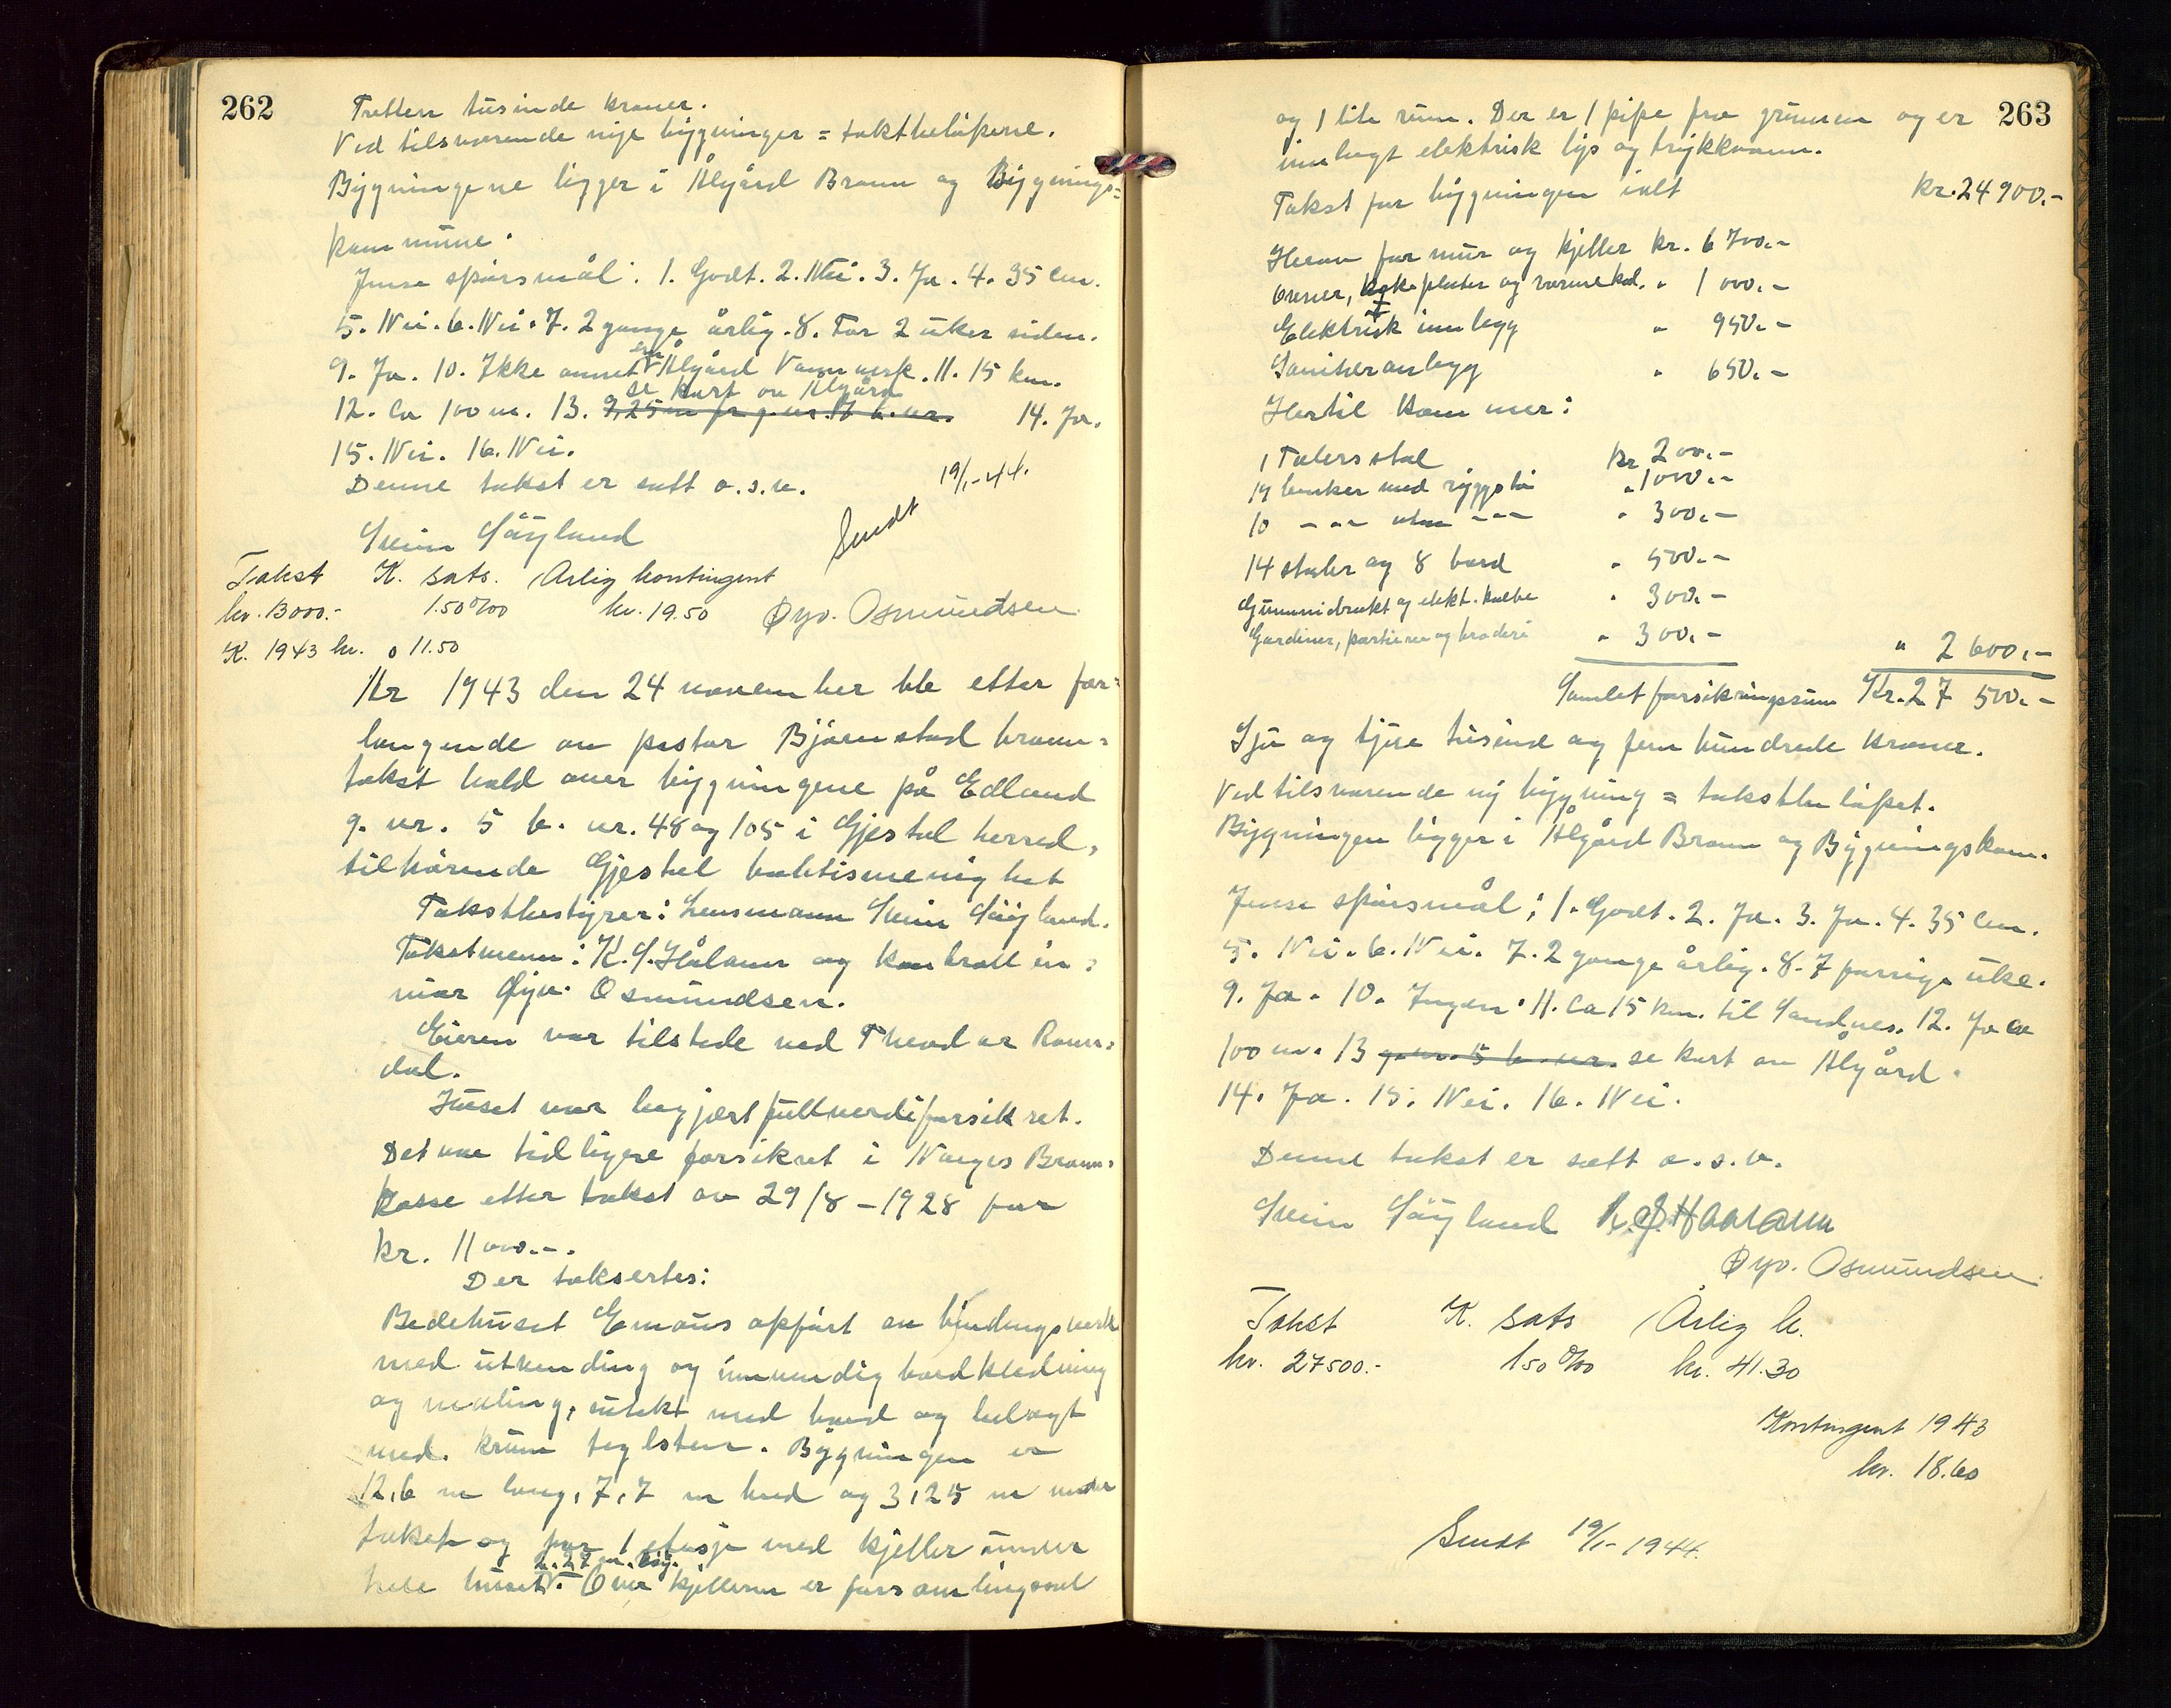 262
Tretten tusinde kroner.
Ved tilsvarende nye bygninger = takstbeløpene.
Bygningene ligger i Ålgård Brann og Bygnings=
kommune.
Jmse spörsmål: 1. Godt. 2. Nei. 3. Ja. 4. 35 cm.
5. Nei. 6. Nei. 7. 2 gange årlig. 8. For 2 uker siden.
9. Ja. 10. Ikke annet enn Ålgård Vannverk. 11. 15 km.
12. Ca 100 m. 13. se kart ov Ålgård 14. Ja.
15. Nei. 16. Nei.
Denne takst er satt o.s.v.
Sendt 19/1-44.
Svein Söyland
Takst K. sats. Årlig kontingent
kr. 13000.- 1.50 o/oo kr. 19.50 Øyv. Osmundsen
K. 1943 kr. 11.50
År 1943 den 24 november ble etter for=
langende av pastor Björnstad brann=
takst hold over bygningene på Edland
g. nr. 5 b. nr. 48 og 105 i Gjestal herred,
tilhörende Gjestal baktismenighet
Takstbestyrer: Lensmann Svein Söyland.
Takstmenn: K. S. Håland og kontrollin=
niör Øyv. Osmundsen.
Eieren var tilstede ved Theodor Rams=
dal.
Huset var begjært fullverdiforsikret.
Det var tidligere forsikret i Norges Brann=
kasse etter takst av 29/8-1928 for
kr. 11000.-.
Der taksertes:
Bedehuset Emaus opfört av bindingsverk
med utvendig og innvendig bordkledning
og maling, utekt med bord og belagt
med krum teglsten. Bygningen er
12,6 m lang, 7,7 m bred og 3,25 m under
taket og har 1 etasje med kjeller under
hele huset 2.27 m. høy. Over kjelleren er forsamlingssal
263
og 1 lite rum. Der er 1 pipe fra grunnen og er
innlagt elektrisk lys og trykkvann.
Takst for bygningen ialt kr. 24900.-
Herav for mur og kjeller kr. 6700.-
Ovner, kokeplater og varmekab. " 1000.-
Elektrisk innlegg " 950.-
Saniteranlegg " 650.-
Hertil kommer:
1 Talersstol kr 200.-
14 benker med ryggstø " 1000.-
10 -"- uten -"- " 300.-
14 stoler og 8 bord " 500.-
Gummidrakt og elekt. kolbe " 300.-
Gardiner, portierer og broderi " 300.- " 2600.-
Samlet forsikringssum Kr. 27 500.-
Sju og tjue tusind og fem hundrede kroner.
Ved tilsvarende ny bygning = takstbelöpet.
Bygningen ligger i Ålgård Brann og Bygningskom.
Jmse spörsmål: 1. Godt. 2. Ja. 3. Ja. 4. 35 cm.
5. Nei. 6. Nei. 7. 2 gange årlig. 8. I forrige uke.
9. Ja. 10. Ingen. 11. Ca 15 km. til Sandnes. 12. Ja ca
100 m. 13 g. nr. 5 b. nr. se kart ov Ålgård.
14. Ja. 15. Nei. 16. Nei.
Denne takst er satt o.s.v.
Svein Söyland K. S. Haaland
Øyv. Osmundsen
Takst K. sats Årlig k.
kr. 27500.- 1.50 o/oo kr. 41.30
Kontingent 1943
kr. 18.60
Sendt 19/1-1944.